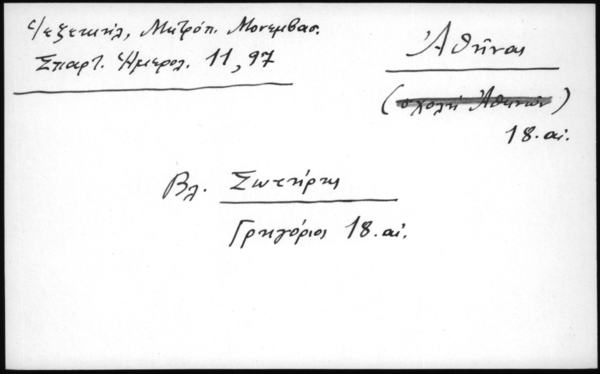 Ἰεζεκιήλ, Μητρόπ. Μονεμβασ.
Σπαρτ. Ἡμερολ. 11, 97
Ἀθῆναι
(σχολή Ἀθηνῶν)
18. αἰ.
Βλ. Σωτήρης
Γρηγόριος 18. αἰ.